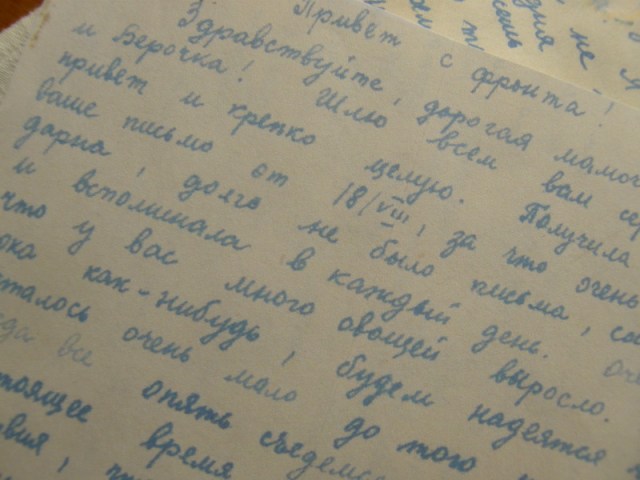 Привет с фронта!
Здравствуйте, дорогая мамоч
и Верочка! Шлю всем вам
привет и крепко целую. Получила
ваше письмо от 18/VIII, за что очень
дарна, долго не было письма,
и вспоминала в каждый день.
что у вас много овощей выросло.
ока как-нибудь, будем надеятся
сталось очень мало до того
да все опять съедемс
тоящее время